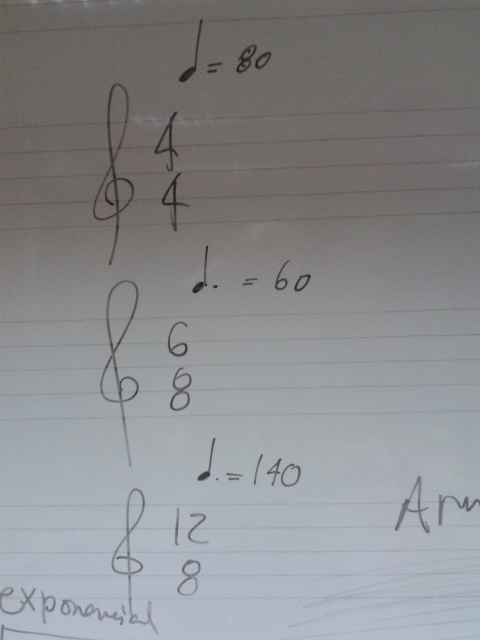 ♩ = 80
4
4
♩. = 60
6
8
♩. = 140
12
8
exponencial